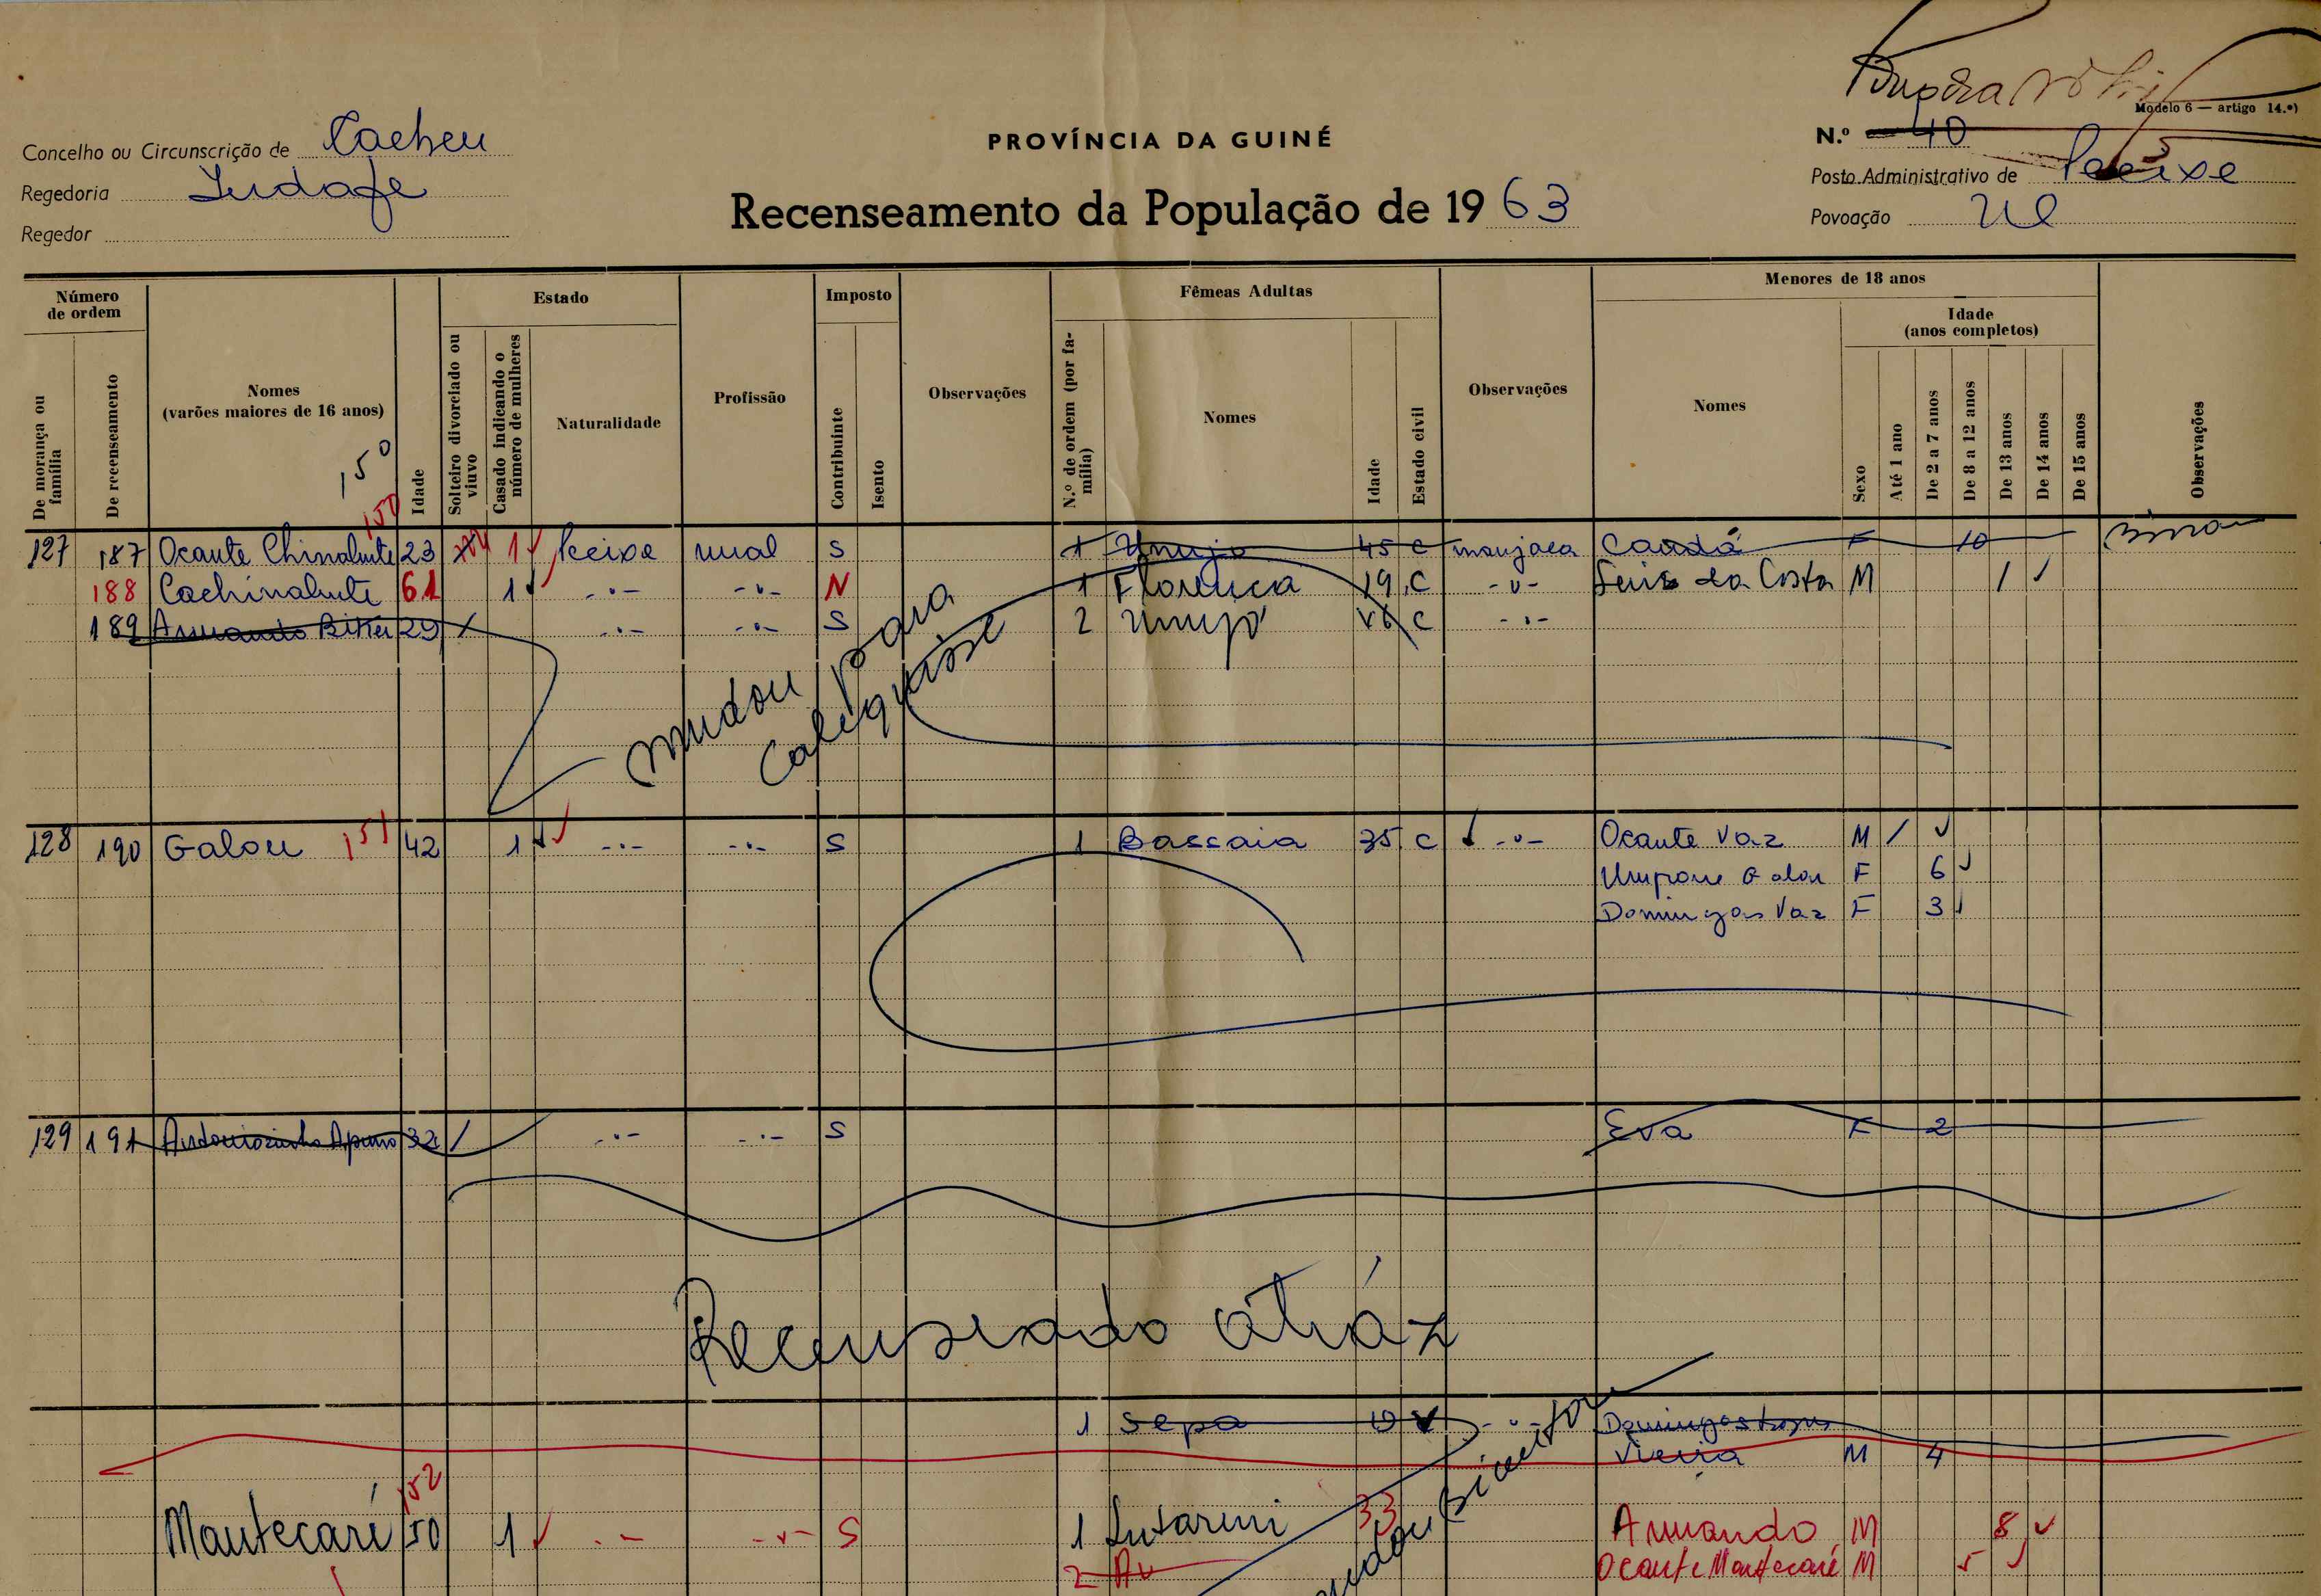 Modelo 6 — artigo 14.º)
Concelho ou Circunscrição de Cacheu
PROVÍNCIA DA GUINÉ
N.º 40
Regedoria
Posto Administrativo de Peeixe
Recenseamento da População de 1963
Regedor
Povoação
Número de ordem
Estado
Imposto
Fêmeas Adultas
Menores de 18 anos
Idade (anos completos)
De morança ou família
De recenseamento
Nomes (varões maiores de 16 anos)
Idade
Solteiro divorciado ou viuvo
Casado indicando o número de mulheres
Naturalidade
Profissão
Contribuinte
Isento
Observações
N.º de ordem (por família)
Nomes
Idade
Estado civil
Observações
Nomes
Sexo
Até 1 ano
De 2 a 7 anos
De 8 a 12 anos
De 13 anos
De 14 anos
De 15 anos
Observações
150
150
127 187 Ocante Chinabute 23 1 Peixe rural S 1 Umujo 45 C manjaca Candá F 10
188 Cachinabute 61 1 -"- -"- N 1 Florença 19 C -"- Luis da Costa M 1
189 Armando Biker 29 / -"- -"- S 2 Umujo C -"-
mudou para
Calequisse
128 190 Galou 151 42 1 -"- -"- S 1 Bassaia 35 C -"- Ocante Vaz M /
Umpone Galou F 6
Domingas Vaz F 3
129 191 32 / -"- -"- S Eva F 2
Recenseado atráz
1 Sepa -"- Domingos
Vieira M 4
152
Mantecaré 50 1 -"- -"- S 1 33 Armando M 8
2 Ocante Mantecaré M